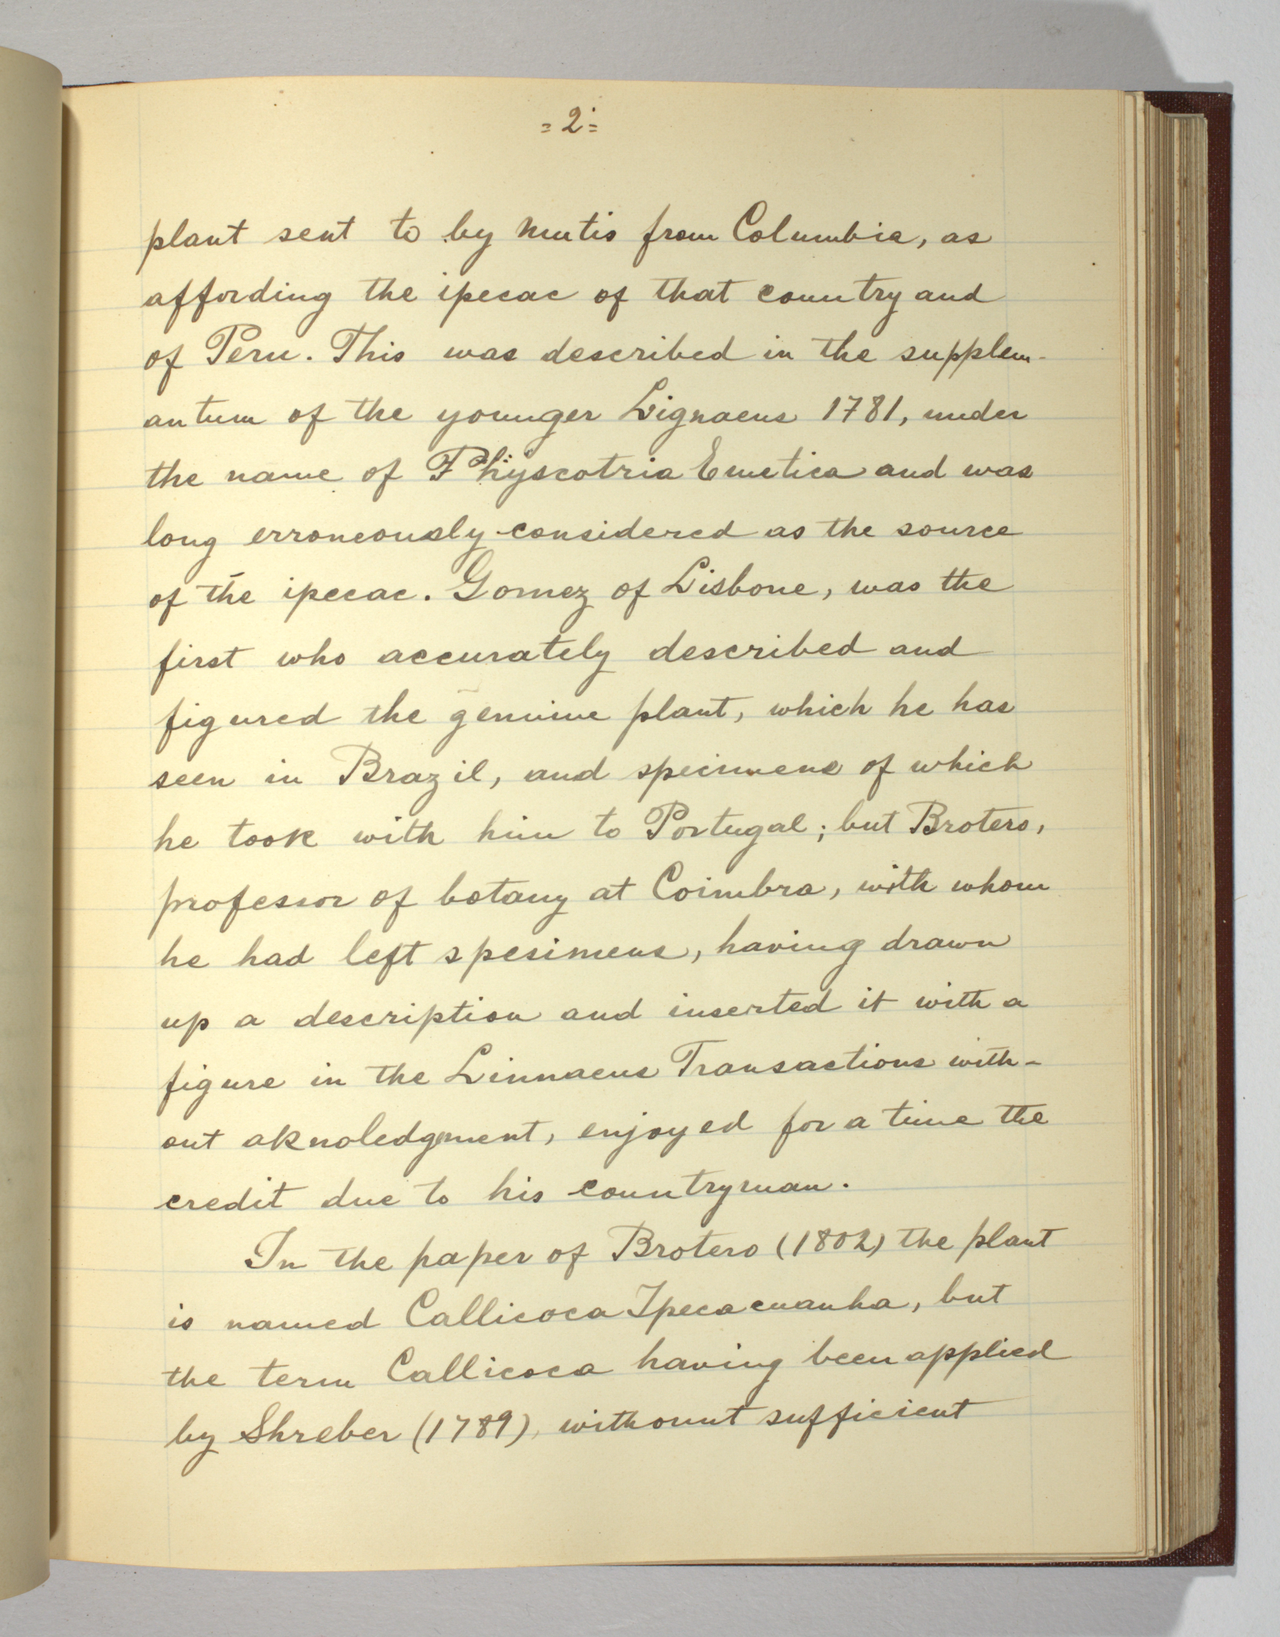 = 2 =
plant sent to by Mutis from Columbia, as
affording the ipecac of that country and
of Peru. This was described in the supplem-
antum of the younger Lignaeus 1781, under
the name of Physcotria Emetica and was
long erroneously considered as the source
of the ipecac. Gomez of Lisbone, was the
first who accurately described and
figured the genuine plant, which he has
seen in Brazil, and specimens of which
he took with him to Portugal; but Brotero,
professor of botany at Coimbra, with whom
he had left spesimens, having drawn
up a description and inserted it with a
figure in the Linnaeus Transactions with-
out aknoledgment, enjoyed for a time the
credit due to his countryman.
In the paper of Brotero (1802) the plant
is named Callicoca Ipecacuanha, but
the term Callicoca having been applied
by Shreber (1789) withount sufficient